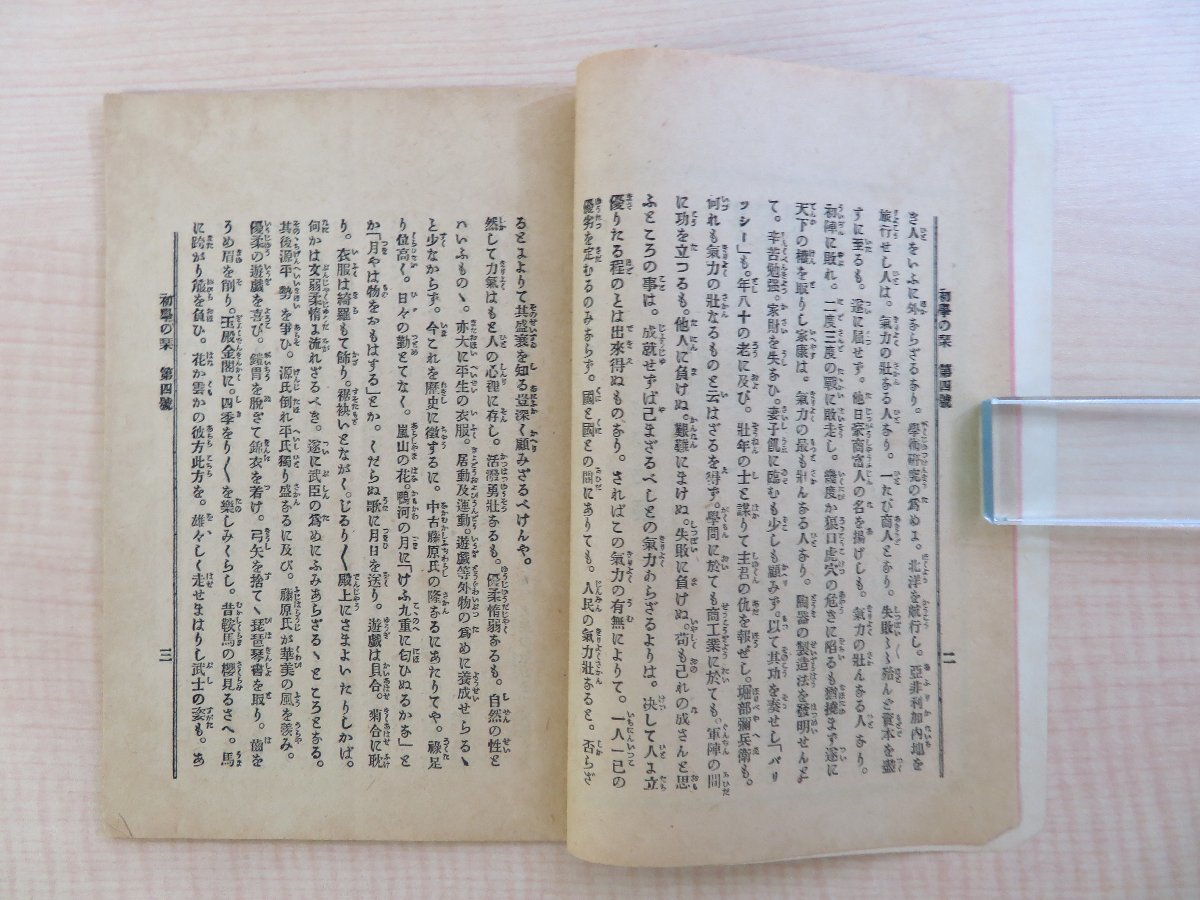 初學の栞　第四號　二
き人をいふに外ならざるなり。學術研究の爲めに。北洋を航行し。亞非利加內地を
旅行せし人は。氣力の壯なる人なり。一たび商人となり。失敗〱殆んど資本を盡
すに至るも。遂に屈せず。他日豪商富人の名を揚げしも。氣力の壯んなる人なり。
初陣に敗れ。二度三度の戰に敗走し。幾度か狼口虎穴の危きに陷るも猶撓まず遂に
天下の權を取りし家康は。氣力の最も壯んなる人なり。陶器の製造法を發明せんと
て。辛苦勉强。家財を失ひ。妻子飢に臨むも少しも顧みず。以て其功を奏せし「パリ
ッシー」も。年八十の老に及び。壯年の士と謀りて主君の仇を報ぜし。堀部彌兵衛も。
何れも氣力の壯なるものと云はざるを得ず。學問に於ても商工業に於ても。軍陣の間
に功を立つるも。他人に負けぬ。艱難にまけぬ。失敗に負けぬ。苟も己れの成さんと思
ふところの事は。成就せずば已まざるべしとの氣力あらざるよりは。决して人よ立
優りたる程のとは出來得ぬものなり。さればこの氣力の有無によりて。一人一己の
優劣を定むるのみならず。國と國との間にありても。人民の氣力壯なると。否らざ
るとまよりて其盛衰を知る豈深く顧みざるべけんや。
然して力氣はもと人の心裡に存し。活潑勇壯なるも。優柔惰弱なるも。自然の性と
ハいふものヽ。亦大に平生の衣服。居動及運動。遊戲等外物の爲めに養成せらるヽ
と少なからず。今これを歷史に徵するに。中古藤原氏の隆なるにあたりてや。祿足
り位高く。日々の勤とてなく。嵐山の花。鴨河の月に「けふ九重に匂ひぬるかな」と
か「月やは物をおもはする」とか。くだらぬ歌に月日を送り。遊戲は貝合。菊合に耽
り。衣服は綺羅もて飾り。裾袂いとながく。じるり〱殿上にさまよいたりしかば。
何かは女弱柔惰ま流れざるべき。遂に武臣の爲めにふみあらざるヽところとなる。
其後源平　勢を爭ひ。源氏倒れ平氏獨り盛なるに及び。藤原氏が華美の風を羨み。
優柔の遊戲を喜び。鎧冑を脫ぎて錦衣を若け。弓矢を捨てヽ琵琶琴書を取り。齒を
うめ眉を削り。玉殿金閣に。四季をり〱を樂しみくらし。昔鞍馬の櫻見るさへ。馬
に跨がり箙を負ひ。花か雲かの彼方此方を。雄々しく走せまはりし武士の姿も。あ
初學の栞　第四號　三